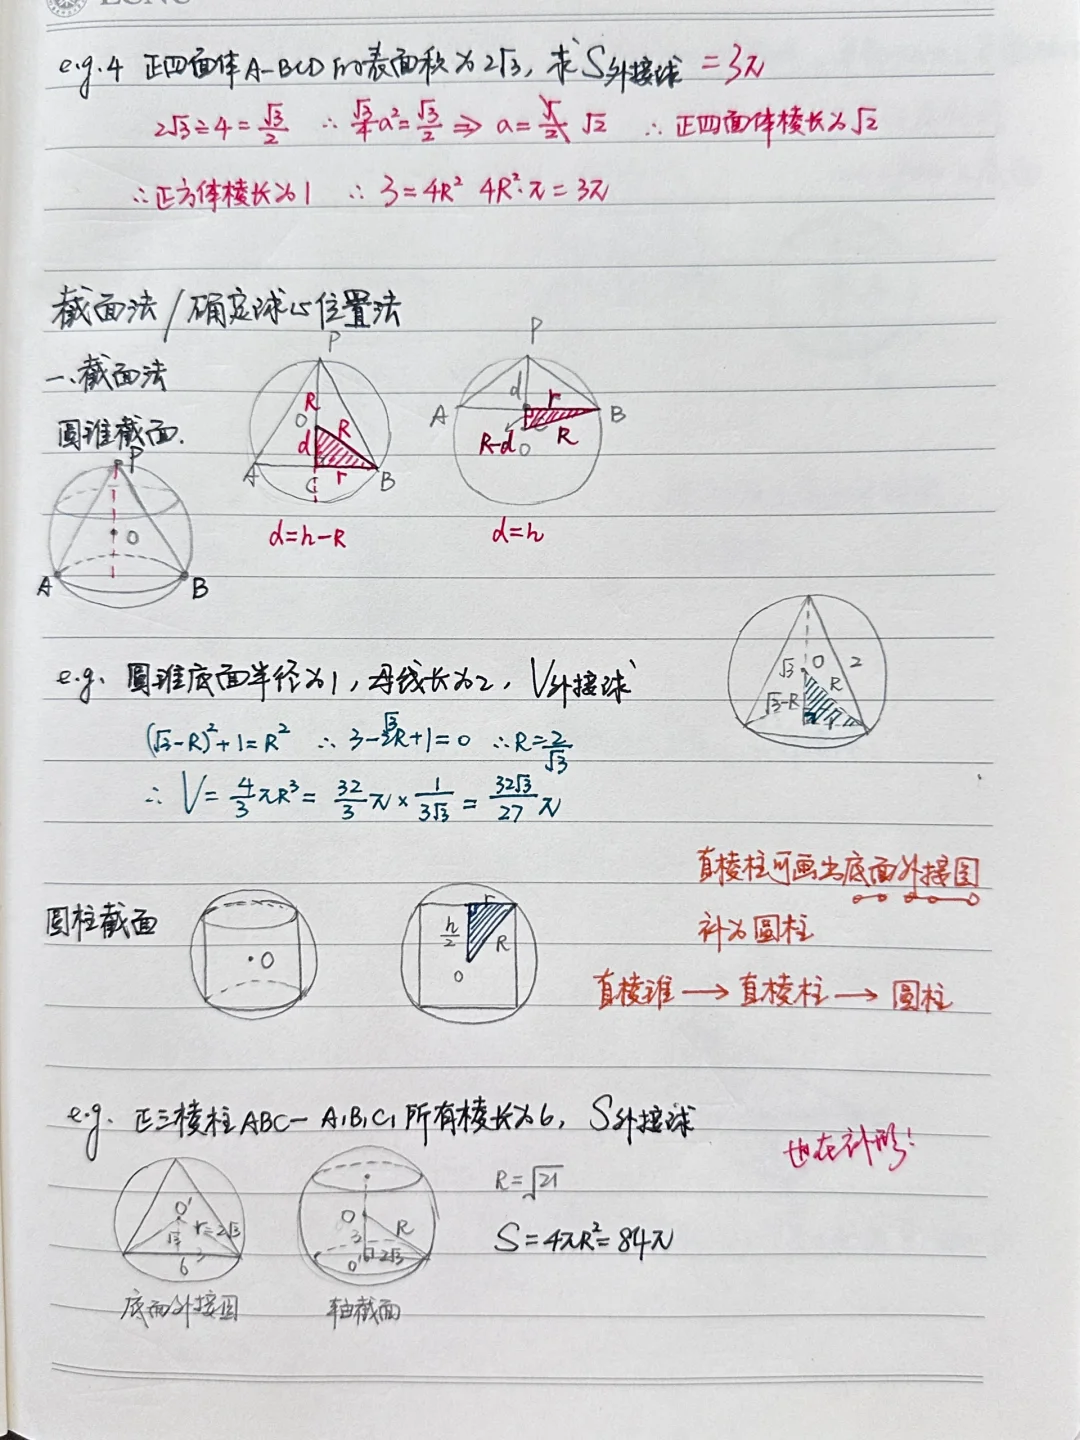 ECNU
e.g.4 正四面体A-BCD的表面积为2√3, 求S外接球 = 3π
2√3÷4=√3/2 ∴ √3/4 a²=√3/2 ⇒ a= √2 ∴ 正四面体棱长为√2
∴正方体棱长为1 ∴ 3=4R² 4R²·π=3π
截面法/确定球心位置法
一、截面法
圆锥截面.
P
O
A
B
P
R
O
R
d
A
C
r
B
d=h-R
P
d
A
r
B
R-d
R
O
d=h
e.g. 圆锥底面半径为1, 母线长为2, V外接球
(√3-R)²+1=R² ∴ 3-2√3R+1=0 ∴R=2/√3
∴ V=4/3πR³= 32/3 π × 1/3√3 = 32√3/27 π
√3
O
2
R
√3-R
1
圆柱截面
O
r
h/2
R
O
直棱柱可画出底面外接圆
补为圆柱
直棱锥 → 直棱柱 → 圆柱
e.g. 正三棱柱ABC-A₁B₁C₁所有棱长为6, S外接球
也在补形!
O'
r=2√3
√3
3
6
底面外接圆
O
3
R
O'
2√3
轴截面
R=√21
S=4πR²=84π